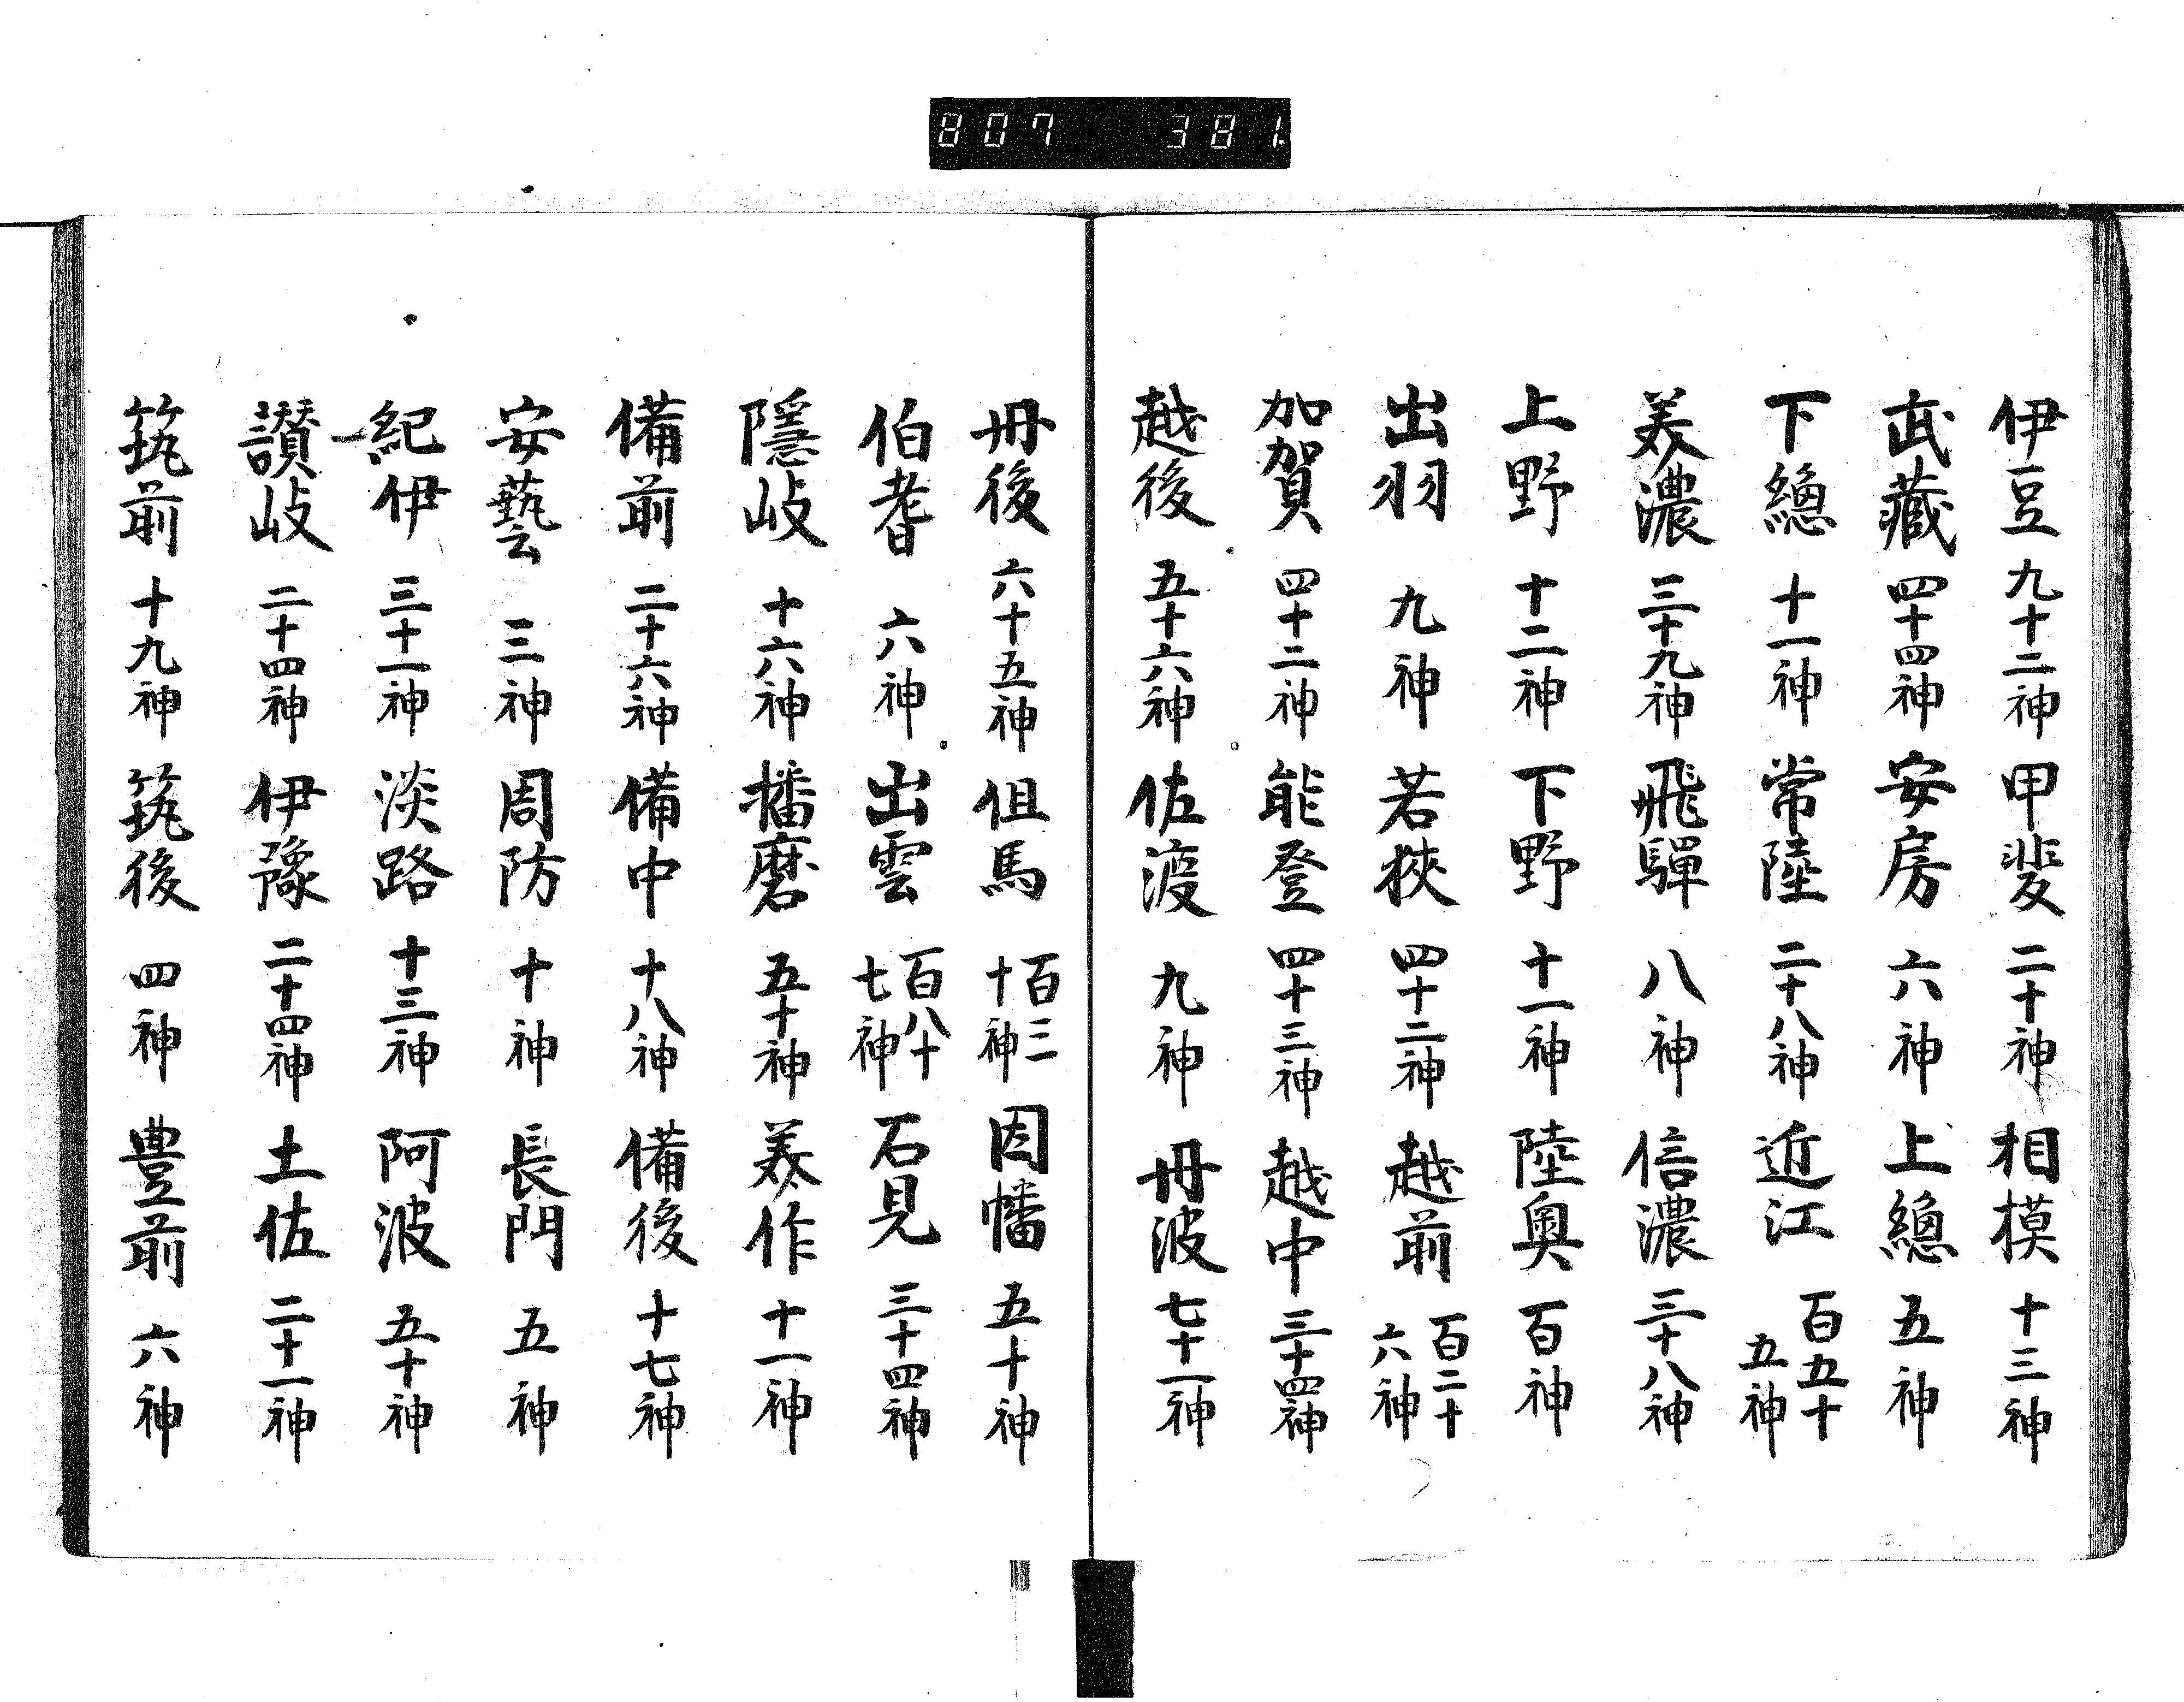 807 381
伊豆九十二神甲斐二十神相模十三神
武藏四十四神安房六神上總五神
下總十一神常陸二十八神近江百五十五神
美濃三十九神飛驒八神信濃三十八神
上野十二神下野十一神陸奥百神
出羽九神若狹四十二神越前百二十六神
加賀四十二神能登四十三神越中三十四神
越後五十六神佐渡九神丹波七十一神
丹後六十五神但馬百三十神因幡五十神
伯耆六神出雲百八十七神石見三十四神
隱岐十六神播磨五十神美作十一神
備前二十六神備中十八神備後十七神
安藝三神周防十神長門五神
紀伊三十一神淡路十三神阿波五十神
讃岐二十四神伊豫二十四神土佐二十一神
筑前十九神筑後四神豊前六神